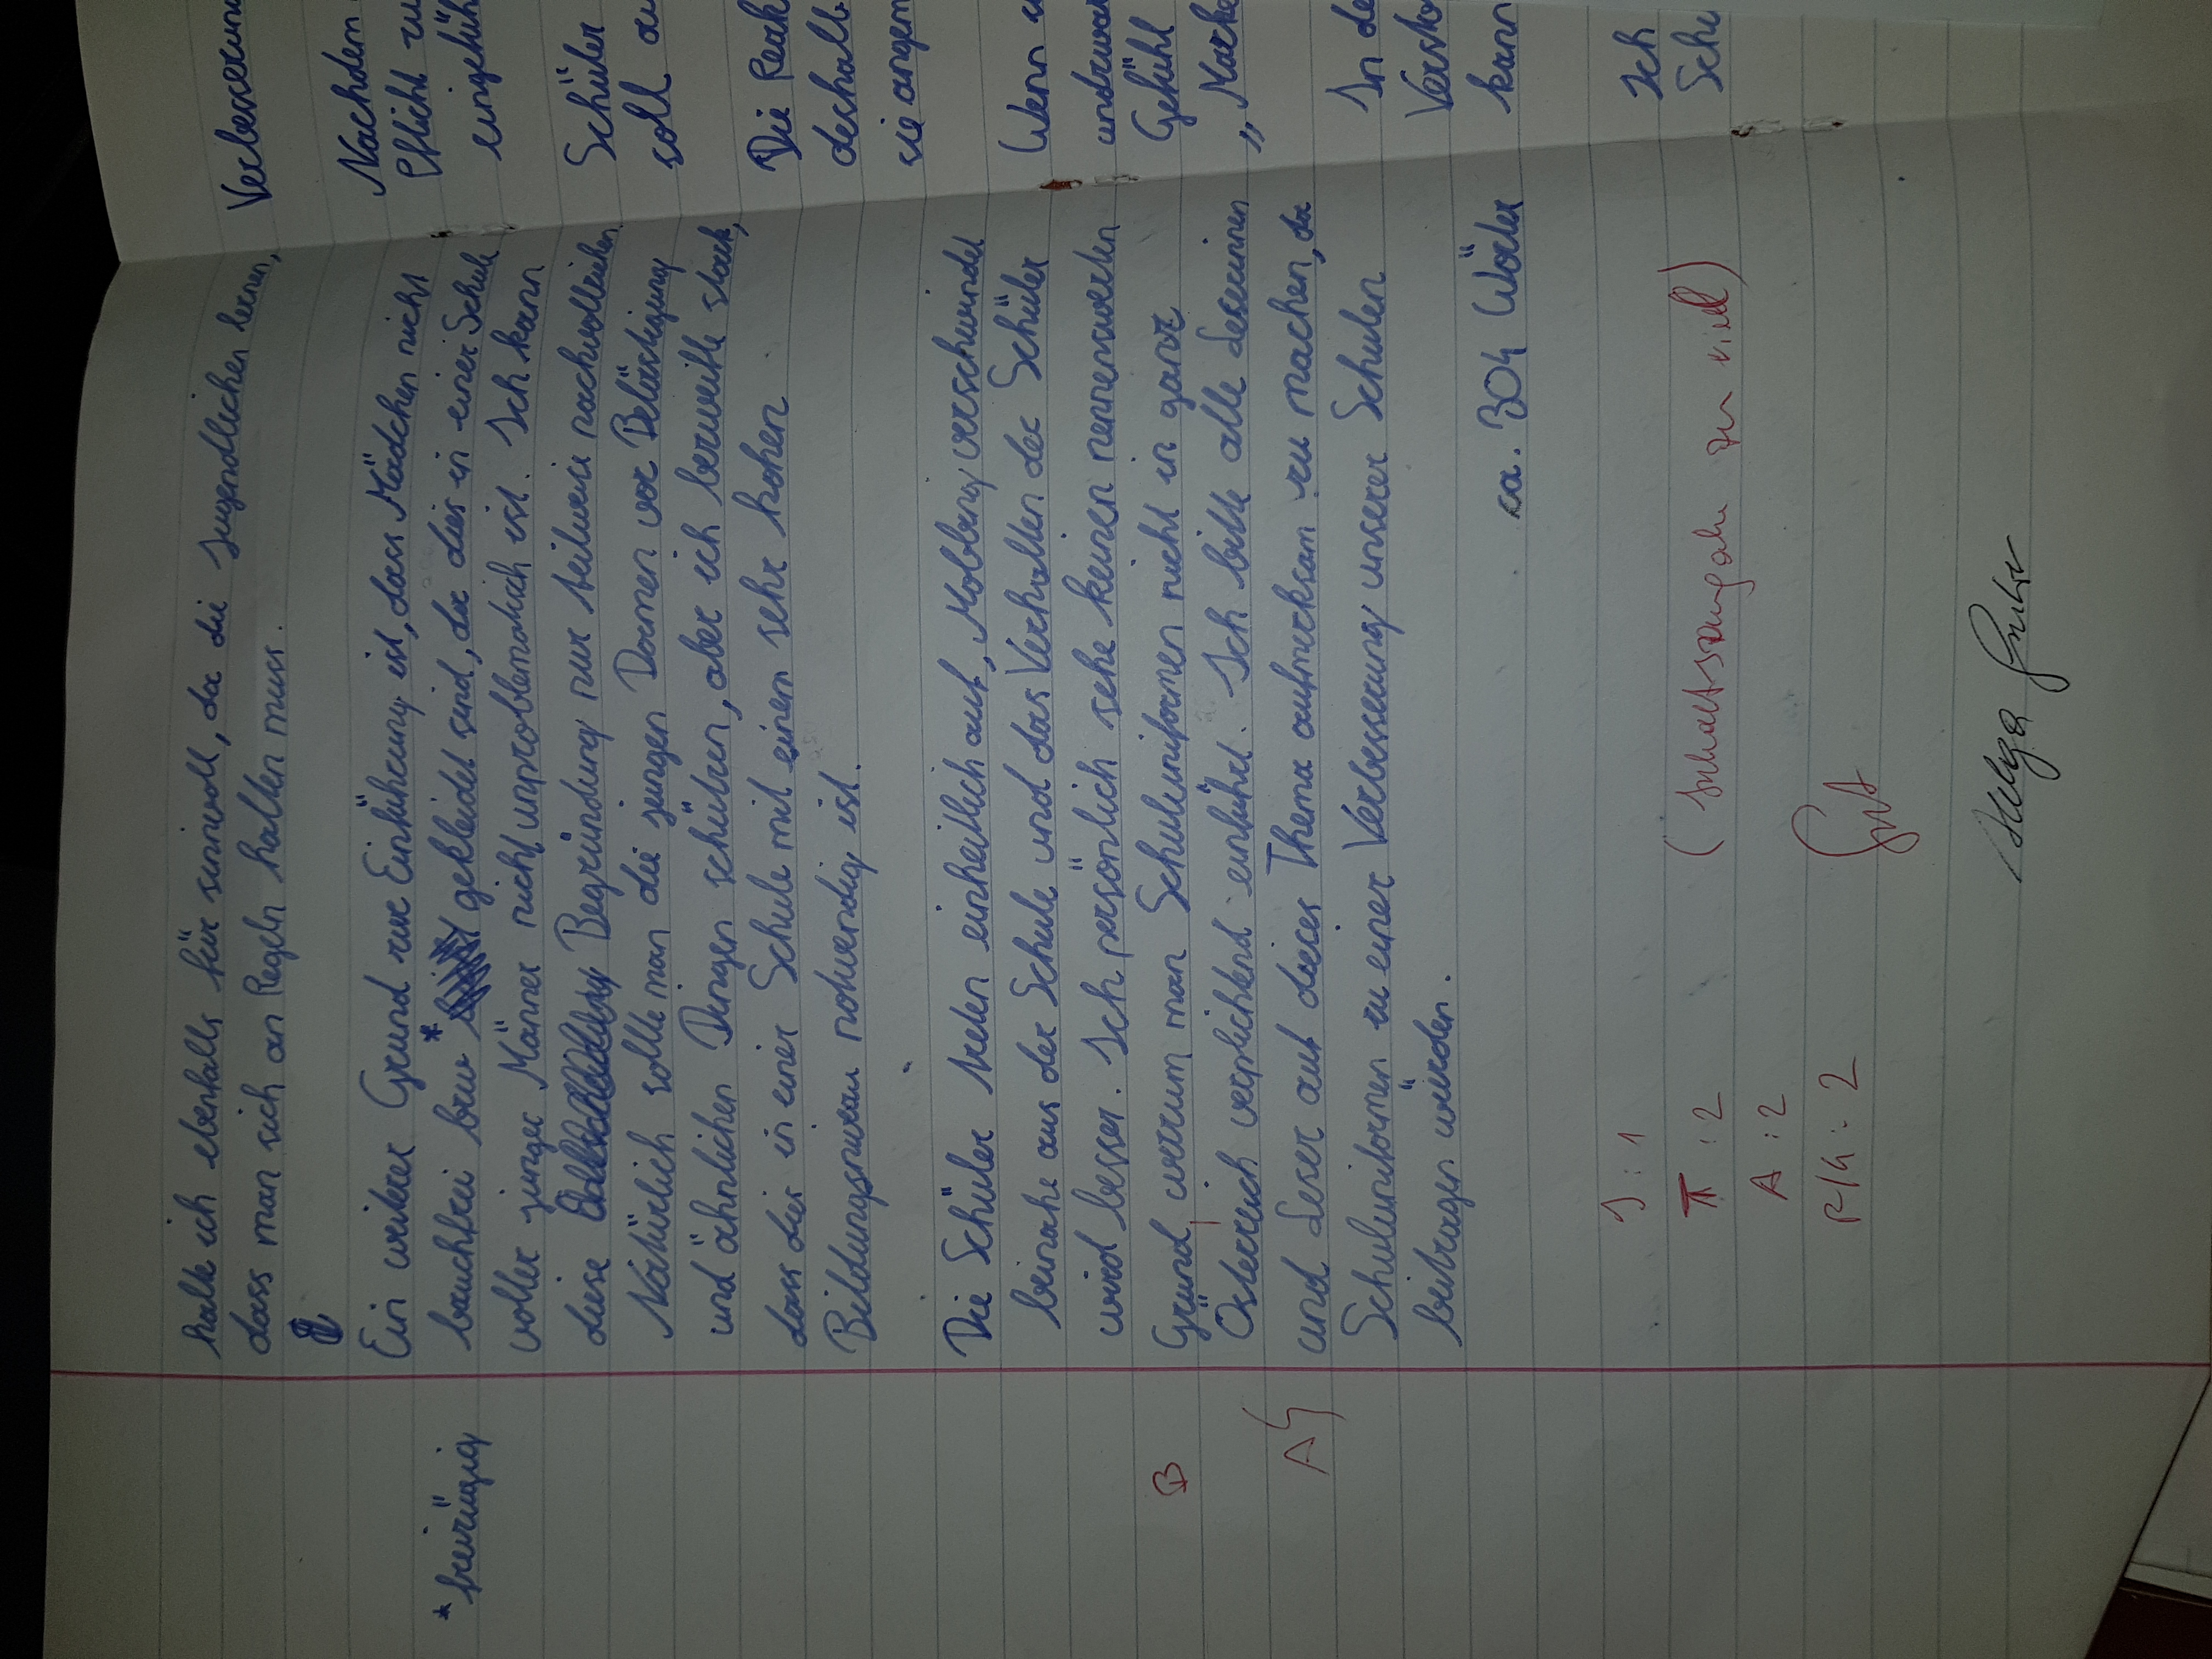 halte ich ebenfalls für sinnvoll, da die Jugendlichen lernen,
dass man sich an Regeln halten muss.
Ein weiterer Grund zur Einführung ist, dass Mädchen nicht
*freizügig
bauchfrei bzw * gekleidet sind, da dies in einer Schule
voller junger Männer nicht unproblematisch ist. Ich kann
diese Begründung nur teilweise nachvollziehen.
Natürlich sollte man die jungen Damen vor Belästigung
und ähnlichen Dingen schützen, aber ich bezweifle stark,
dass dies in einer Schule mit einem sehr hohen
Bildungsniveau notwendig ist.
Die Schüler treten einheitlich auf, Mobbing verschwindet
beinahe aus der Schule und das Verhalten der Schüler
wird besser. Ich persönlich sehe keinen nennenswerten
B
Grund, warum man Schuluniformen nicht in ganz
Österreich verplichtend einführt. Ich bitte alle Leserinnen
A
und Leser auf dieses Thema aufmerksam zu machen, da
Schuluniformen zu einer Verbesserung unserer Schulen
beitragen würden.
ca. 304 Wörter
I : 1
T : 2 (Inhaltsangabe zu viel)
A : 2
R/G : 2
Gut
Helga Gruber
Verbesserun
Nachdem
Pflicht zu
eingefüh
Schüler
soll au
Die Reak
deshalb
sie angem
Wenn
und zwar
Gefühl
„Marke
In de
Versto
kann
Ich
Schu